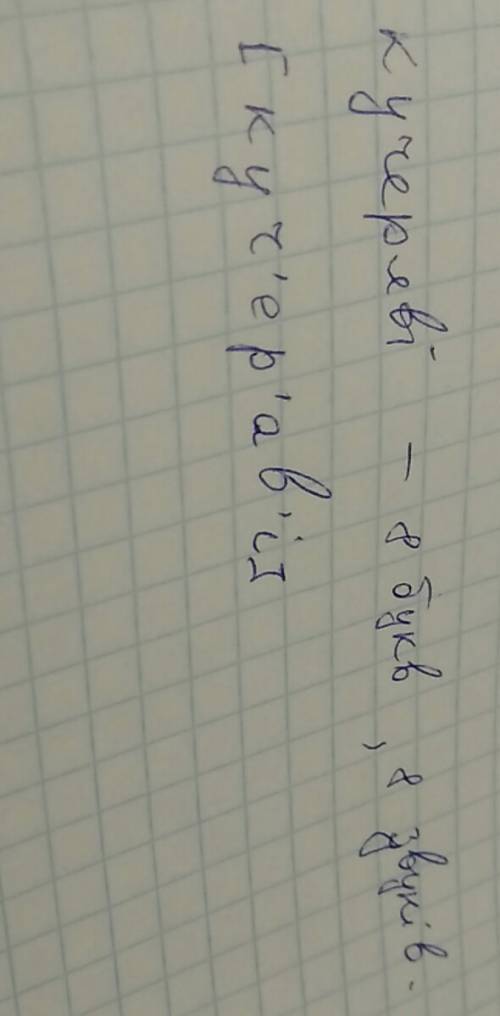 кучеряві - 8 букв, 8 звуків.
[куч'ер'ав'і]